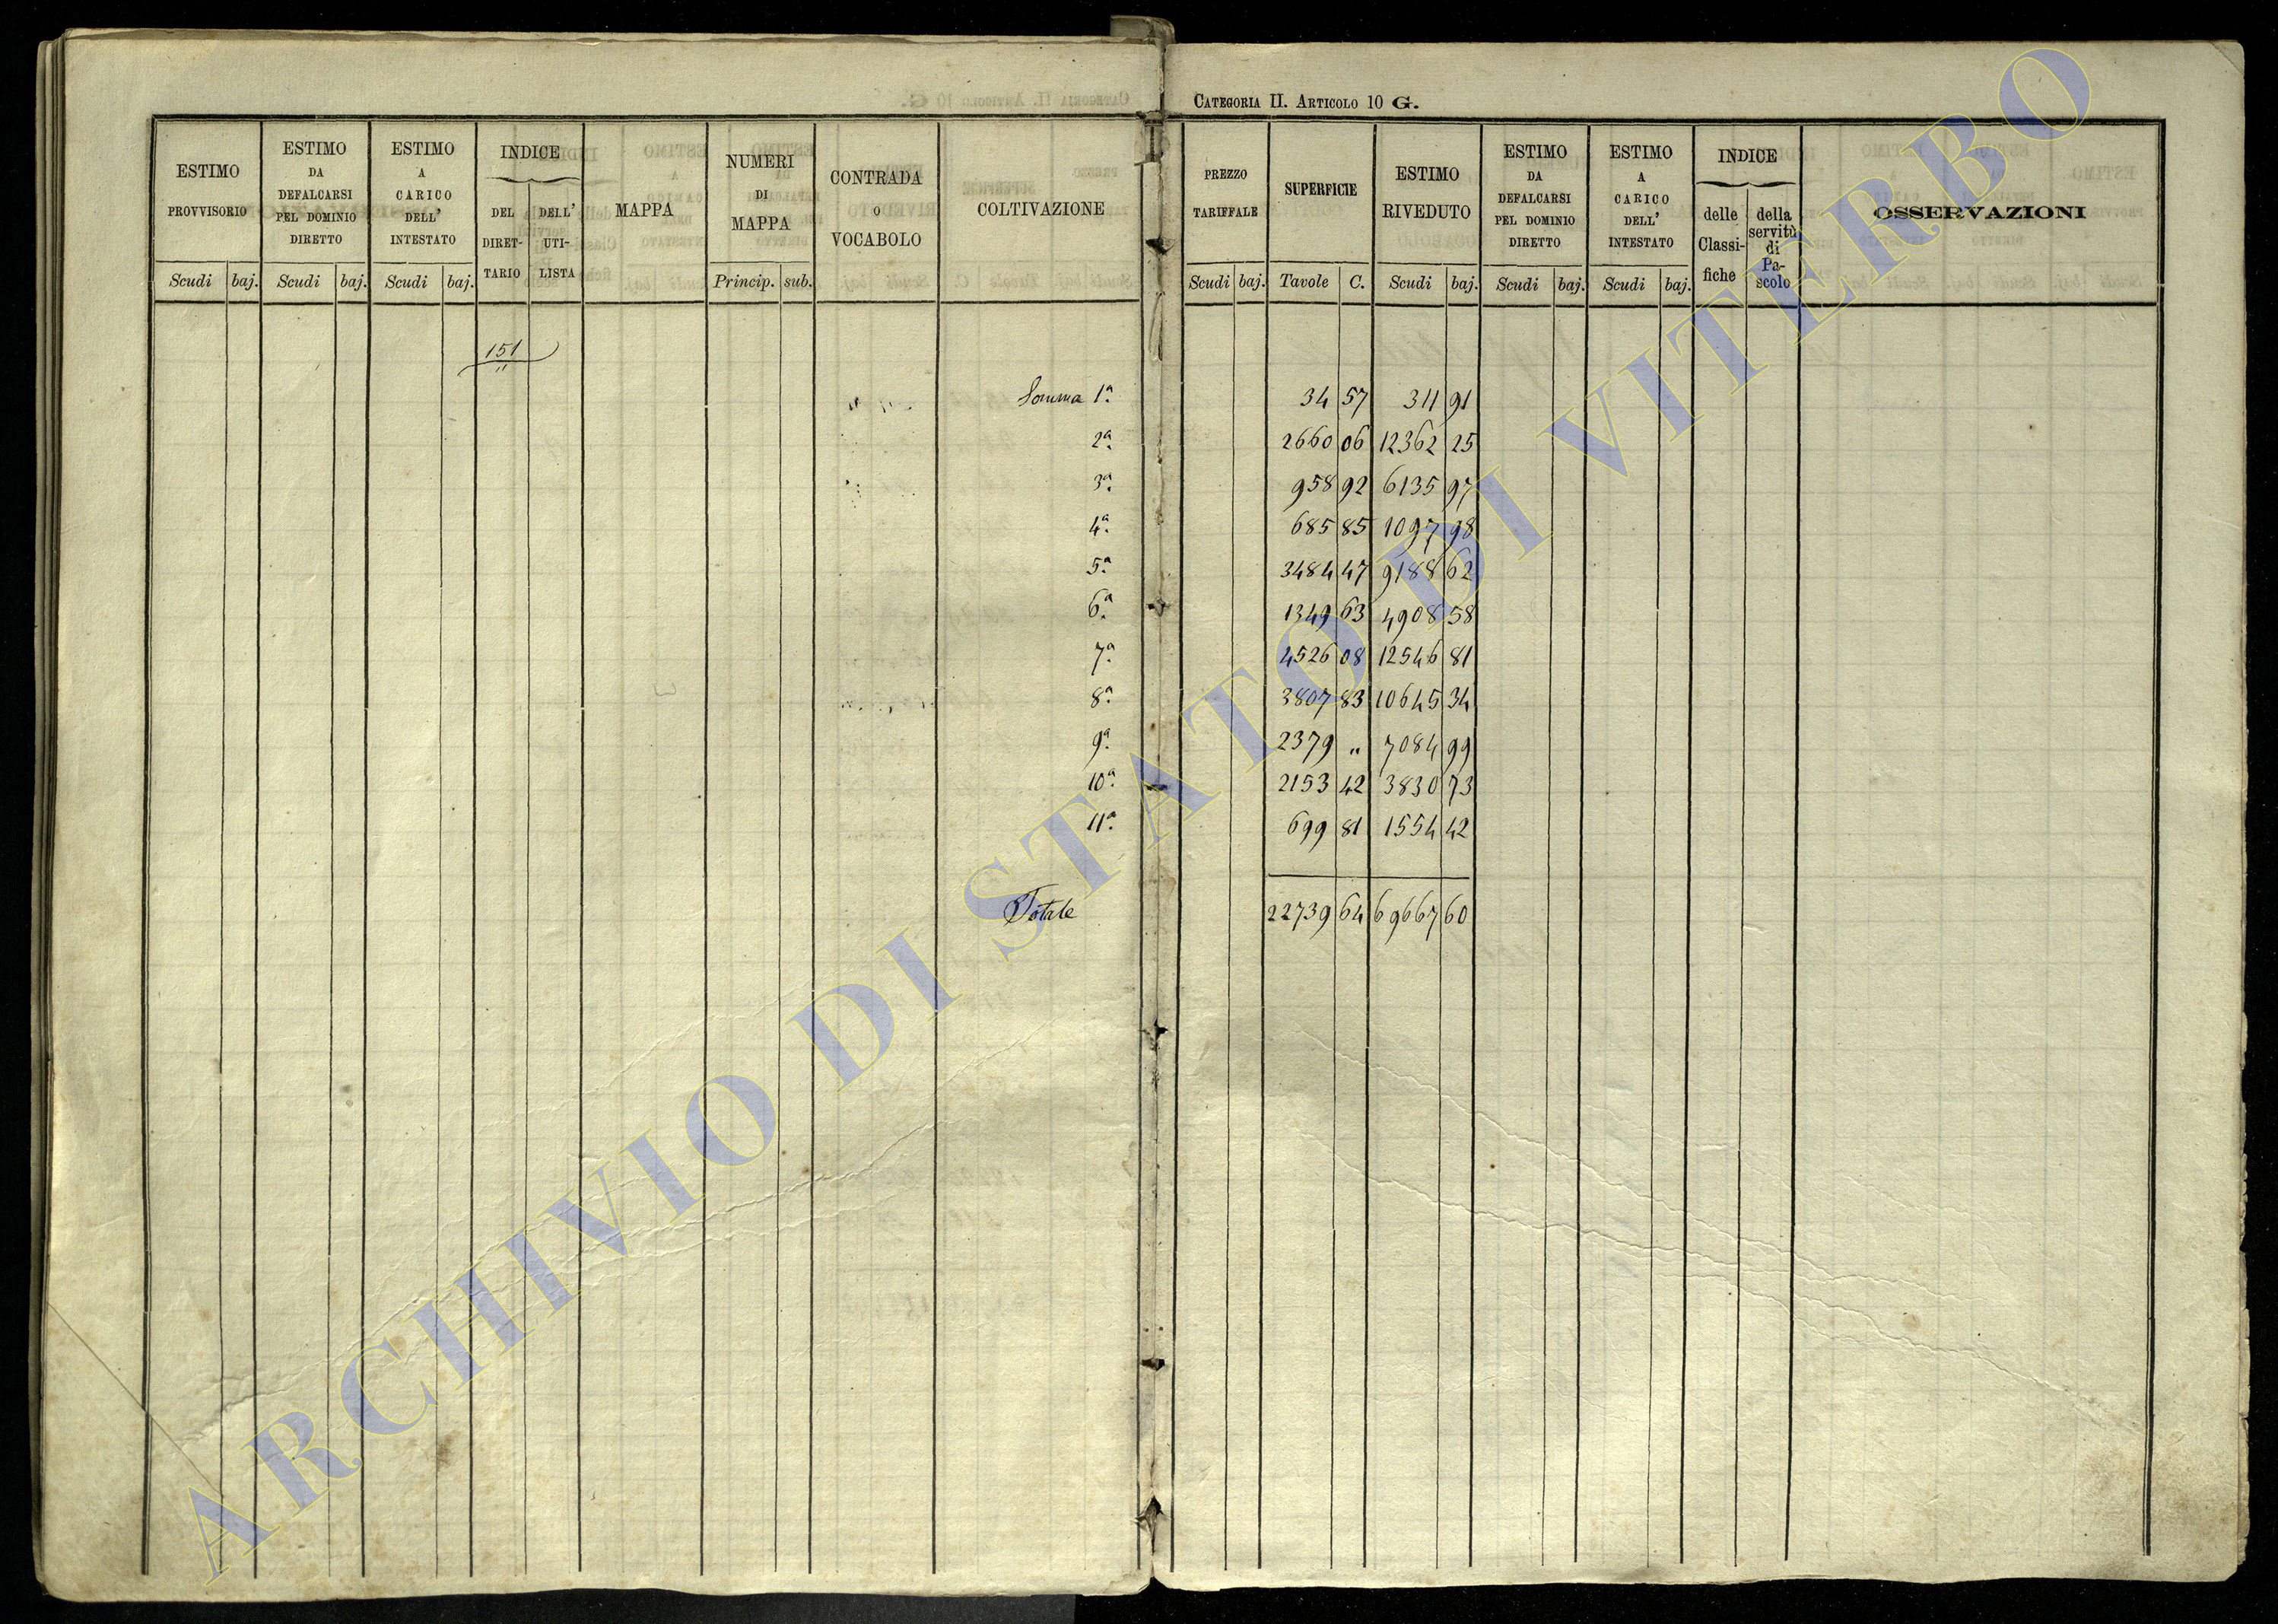 CATEGORIA II. ARTICOLO 10 G.
ESTIMO PROVVISORIO
Scudi baj.
ESTIMO DA DEFALCARSI PEL DOMINIO DIRETTO
Scudi baj.
ESTIMO A CARICO DELL' INTESTATO
Scudi baj.
INDICE
DEL DIRET- TARIO
DELL' UTI- LISTA
MAPPA
NUMERI DI MAPPA
Princip. sub.
CONTRADA O VOCABOLO
COLTIVAZIONE
PREZZO TARIFFALE
Scudi baj.
SUPERFICIE
Tavole C.
ESTIMO RIVEDUTO
Scudi baj.
ESTIMO DA DEFALCARSI PEL DOMINIO DIRETTO
Scudi baj.
ESTIMO A CARICO DELL' INTESTATO
Scudi baj.
INDICE
delle Classi- fiche
della servitù di Pa- scolo
OSSERVAZIONI
151
"
Somma 1ª. 34 57 311 91
2ª. 2660 06 12362 25
3ª. 958 92 6135 97
4ª. 685 85 1097 98
5ª. 3484 47 9188 62
6ª. 1349 63 4908 58
7ª. 4526 08 12546 81
8ª. 3807 83 10645 34
9ª. 2379 " 7084 99
10ª. 2153 42 3830 73
11ª. 699 81 1554 42
Totale 22739 64 69667 60
ARCHIVIO DI STATO DI VITERBO